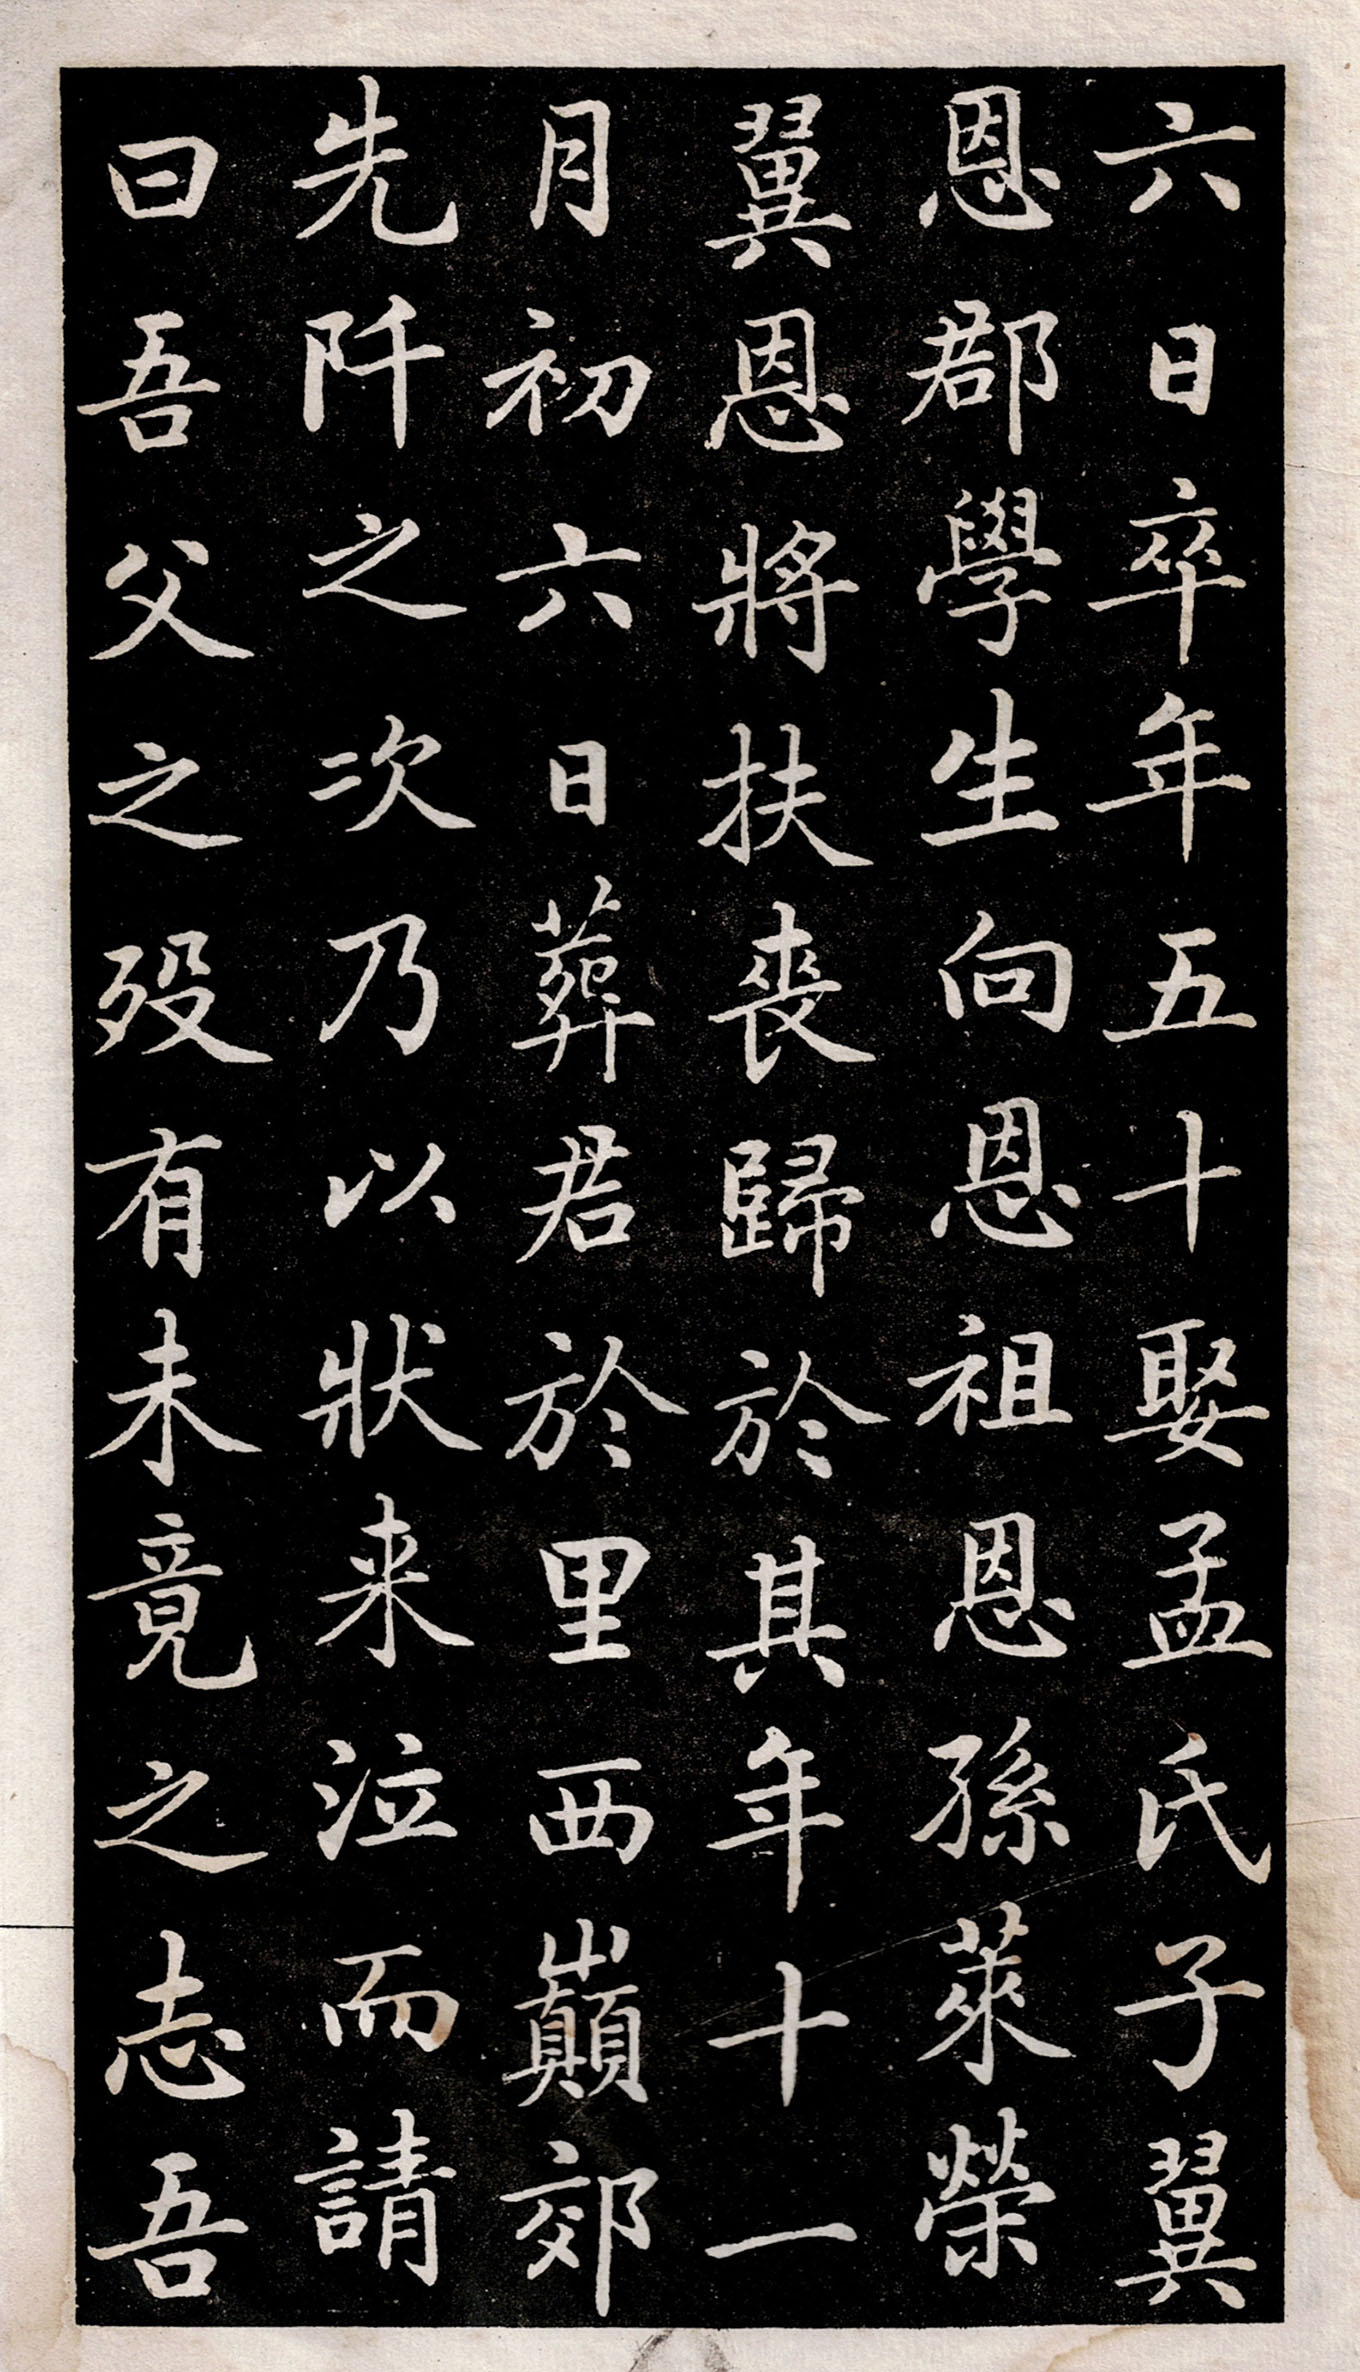 六日卒年五十娶孟氏子翼
恩郡學生向恩祖恩孫萊榮
翼恩將扶喪歸於其年十一
月初六日葬君於里西巔郊
先阡之次乃以狀来泣而請
曰吾父之歿有未竟之志吾